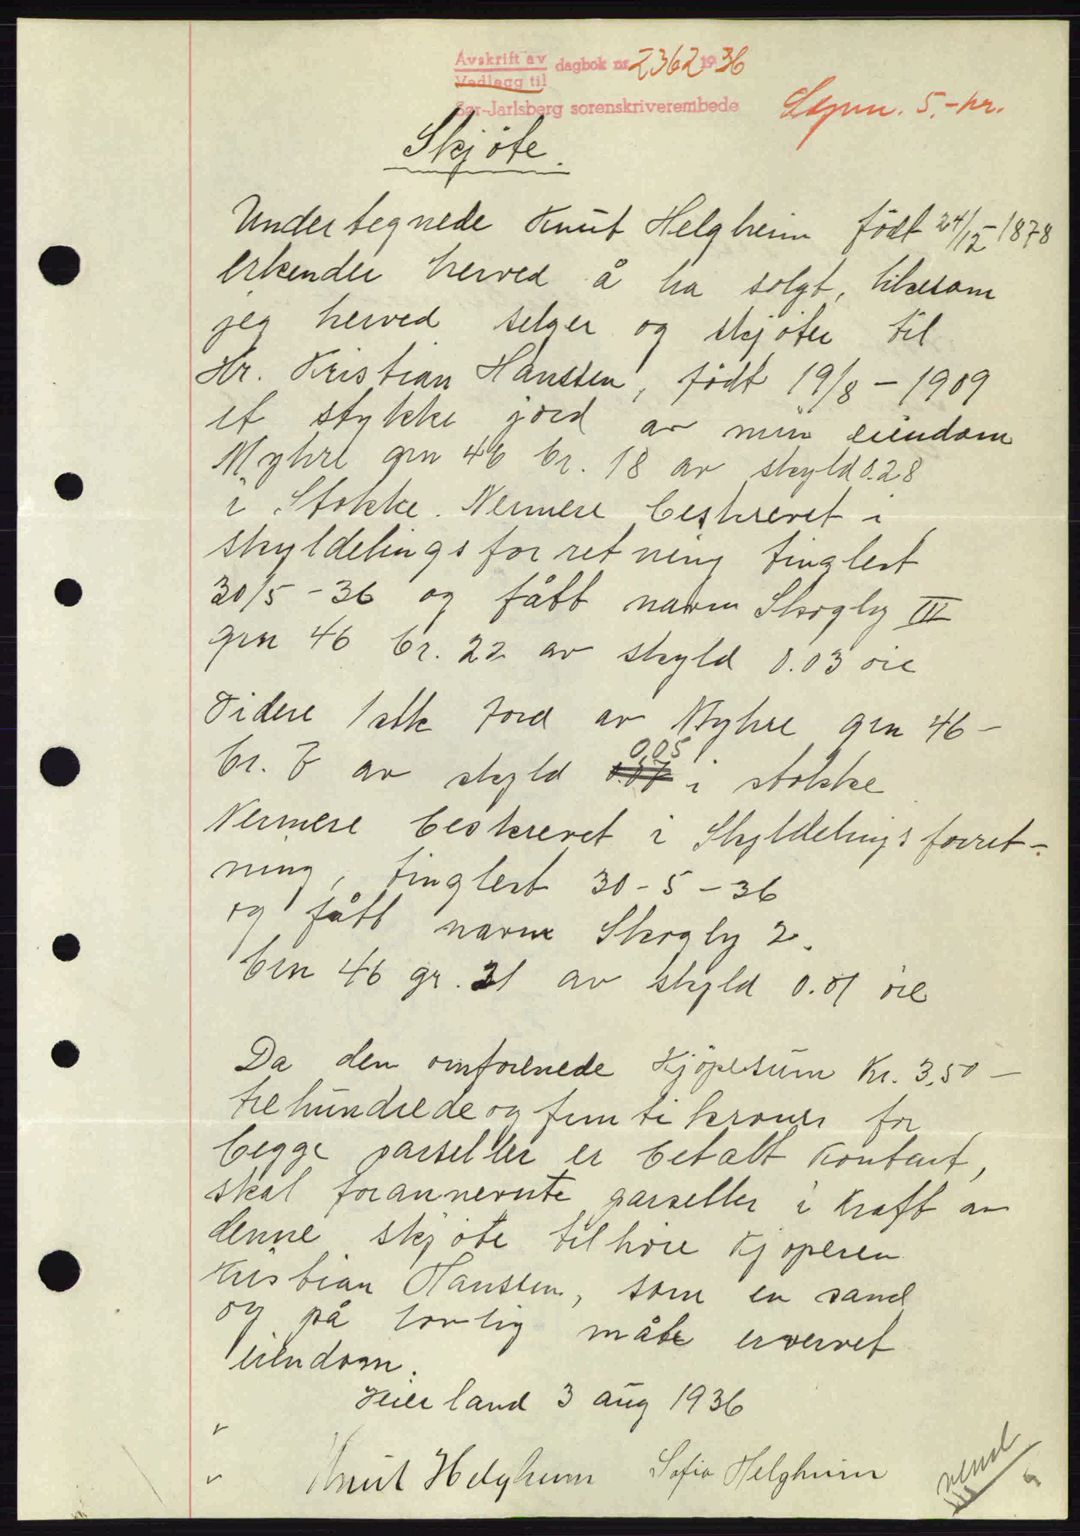 Avskrift av dagbok nr 2362 1936
Vedlegg til
Sør-Jarlsberg sorenskriverembede
5.- kr.
Skjøte.
Undertegnede Knut Helgheim født 24/12 1878
erkender herved å ha solgt, likesom
jeg herved selger og skjøter til
Hr. Kristian Hanssen, født 19/8 - 1909
et stykke jord av min eiendom
Myhre grn 46 br. 18 av skyld 0.28
i Stokke. Nermere beskrevet i
skyldelingsforretning tinglest
30/5 - 36 og fått navn Skogly III
grn 46 br. 22 av skyld 0.03 øre
Videre 1 stk Jord av Myhre grn 46 -
0,05
br. 7 av skyld 0.07 i stokke
Nermere beskrevet i Skyldelingsforret-
ning, tinglest 30 - 5 - 36
og fått navn Skogly 2.
brn 46 gr. 21 av skyld 0.01 øre
Da den omforenede Kjøpesum Kr. 3,50 -
trehundrede og femti kroner for
begge parseller er betalt Kontant,
skal forannevnte parseller i Kraft av
denne skjøte tilhøre Kjøperen
Kristian Hanssen, som en sand
og på lovlig måte ervervet
eiendom.
Heierland 3 aug 1936
Knut Helgheim Sofie Helgheim